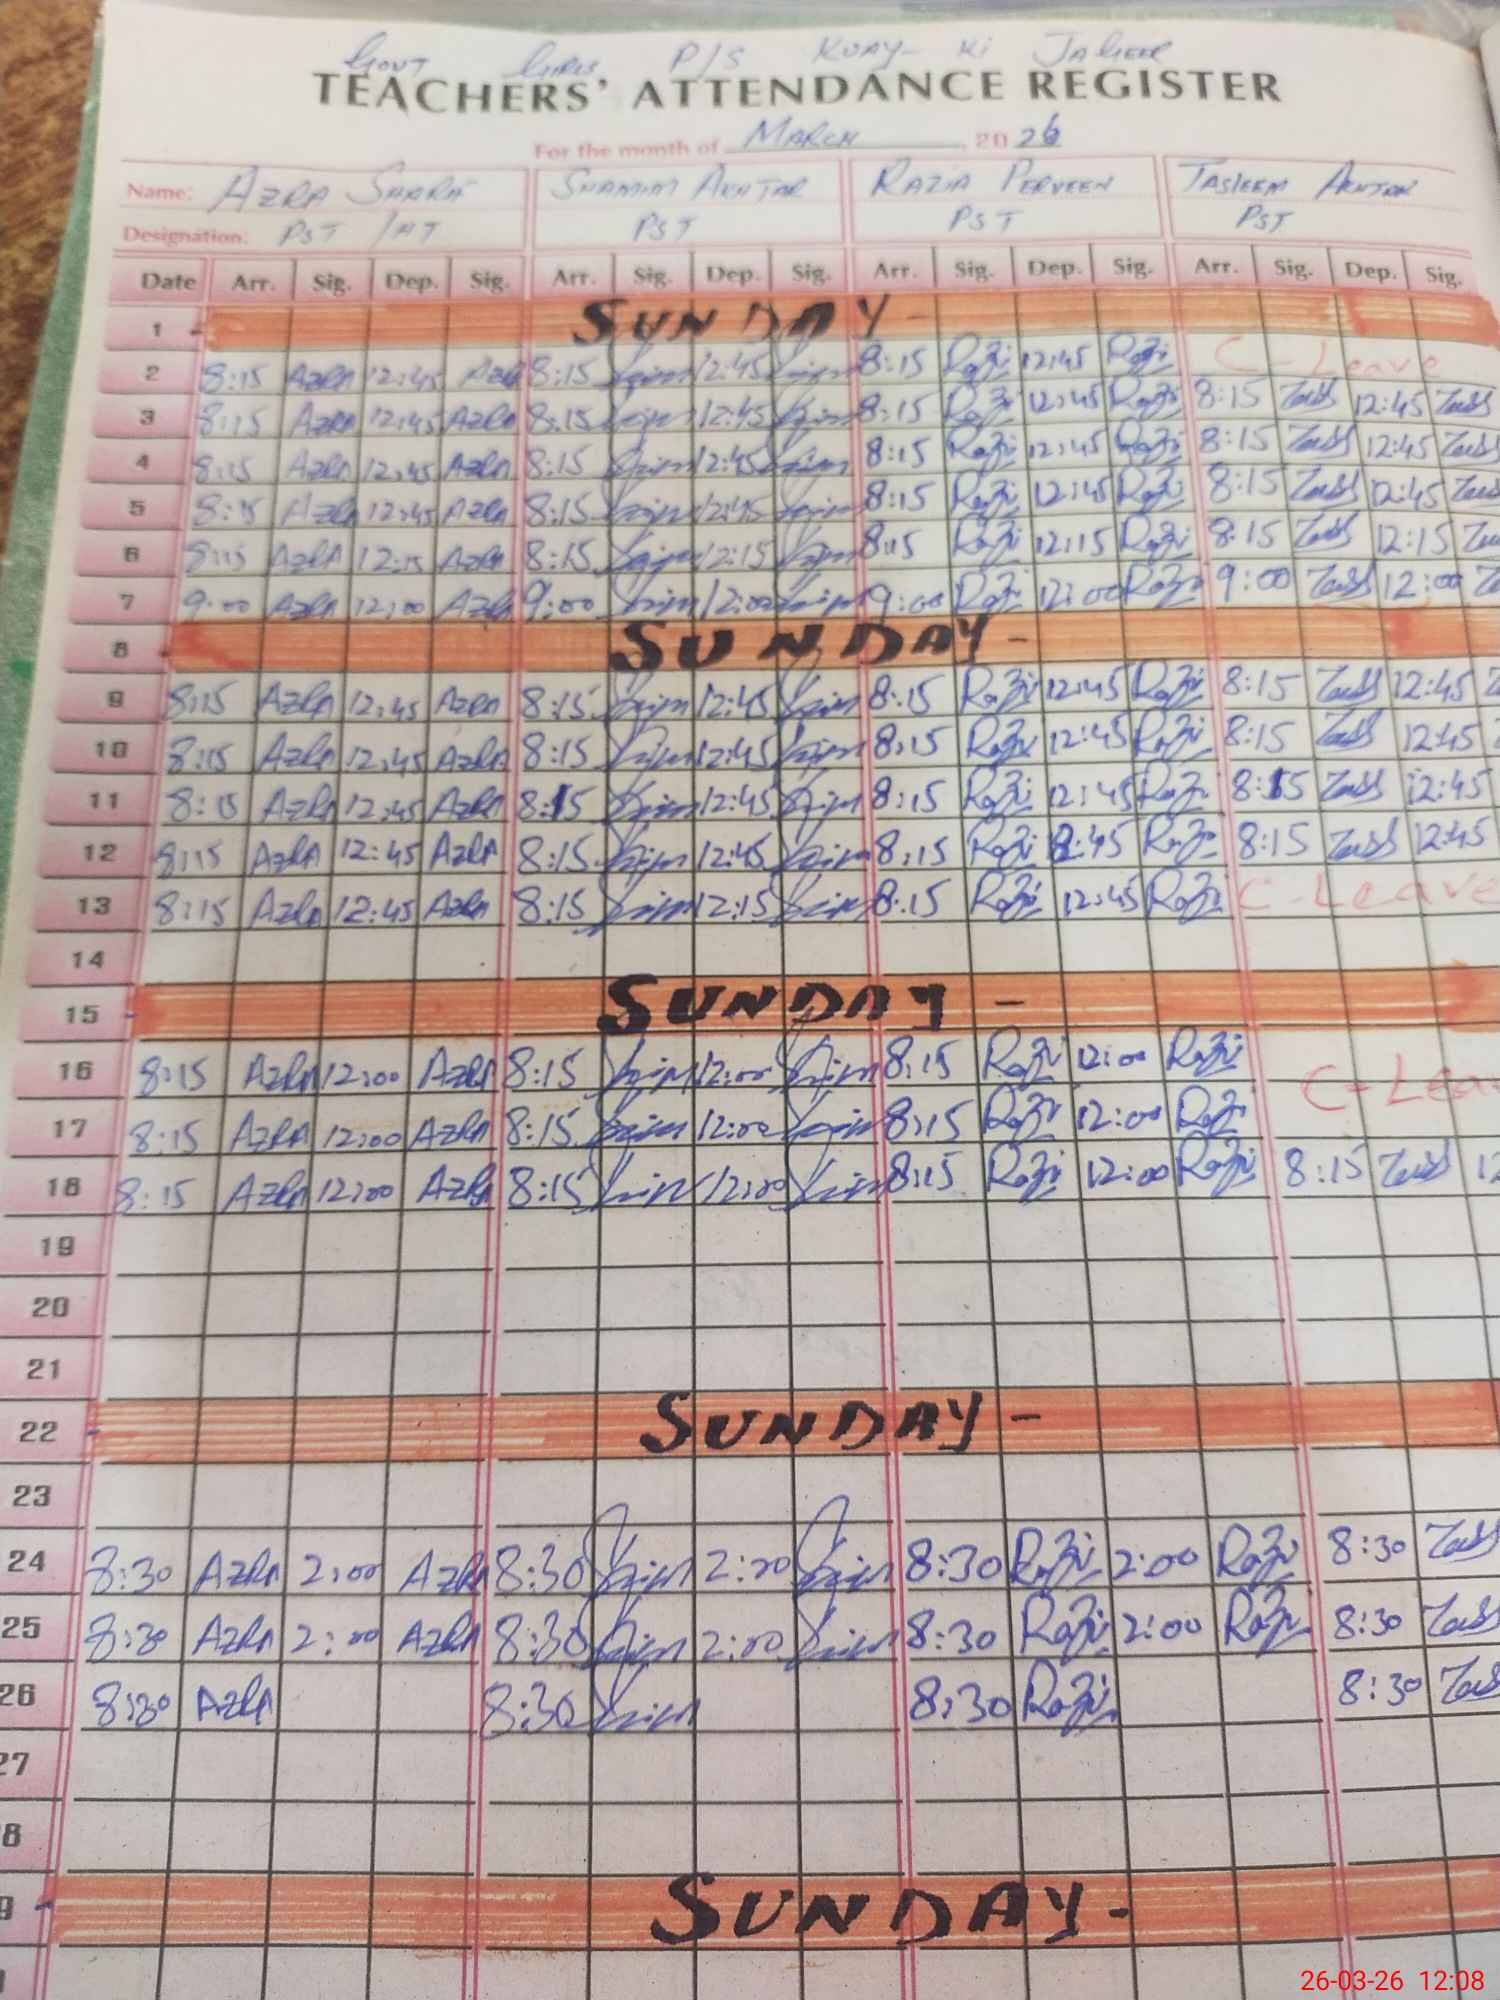 Govt Girls P/S KUAY- Ki JAGEER
TEACHERS' ATTENDANCE REGISTER
For the month of MARCH, 2026
Name: AZRA SHAMIM AKHTAR RAZIA PERVEEN TASLEEM AKHTAR
Designation: PST /HT PST PST PST
Date Arr. Sig. Dep. Sig. Arr. Sig. Dep. Sig. Arr. Sig. Dep. Sig. Arr. Sig. Dep. Sig.
1 SUNDAY -
2 8:15 Azra 12:45 Azra 8:15 12:45 8:15 Razi 12:45 Razi C-Leave
3 8:15 Azra 12:45 Azra 8:15 12:45 8:15 Razi 12:45 Razi 8:15 Tass 12:45 Tass
4 8:15 Azra 12:45 Azra 8:15 12:45 8:15 Razi 12:45 Razi 8:15 Tass 12:45 Tass
5 8:15 Azra 12:45 Azra 8:15 12:45 8:15 Razi 12:45 Razi 8:15 Tass 12:45 Tass
6 8:15 Azra 12:15 Azra 8:15 12:15 8:15 Razi 12:15 Razi 8:15 Tass 12:15
7 9:00 Azra 12:00 Azra 9:00 12:00 9:00 Razi 12:00 Razi 9:00 Tass 12:00
8 SUNDAY -
9 8:15 Azra 12:45 Azra 8:15 12:45 8:15 Razi 12:45 Razi 8:15 Tass 12:45
10 8:15 Azra 12:45 Azra 8:15 12:45 8:15 Razi 12:45 Razi 8:15 Tass 12:45
11 8:15 Azra 12:45 Azra 8:15 12:45 8:15 Razi 12:45 Razi 8:15 Tass 12:45
12 8:15 Azra 12:45 Azra 8:15 12:45 8:15 Razi Razi 8:15 Tass 12:45
13 8:15 Azra 12:45 Azra 8:15 12:15 8:15 Razi 12:45 Razi C-Leave
14
15 SUNDAY -
16 8:15 Azra 12:00 Azra 8:15 12:00 8:15 Razi 12:00 Razi C-Lea
17 8:15 Azra 12:00 Azra 8:15 12:00 8:15 Razi 12:00 Razi
18 8:15 Azra 12:00 Azra 8:15 12:00 8:15 Razi 12:00 Razi 8:15 Tass 12
19
20
21
22 SUNDAY -
23
24 8:30 Azra 2:00 Azra 8:30 2:00 8:30 Razi 2:00 Razi 8:30 Tass
25 8:30 Azra 2:00 Azra 8:30 2:00 8:30 Razi 2:00 Razi 8:30 Tass
26 8:30 Azra 8:30 8:30 Razi 8:30 Tass
27
8
9 SUNDAY -
26-03-26 12:08